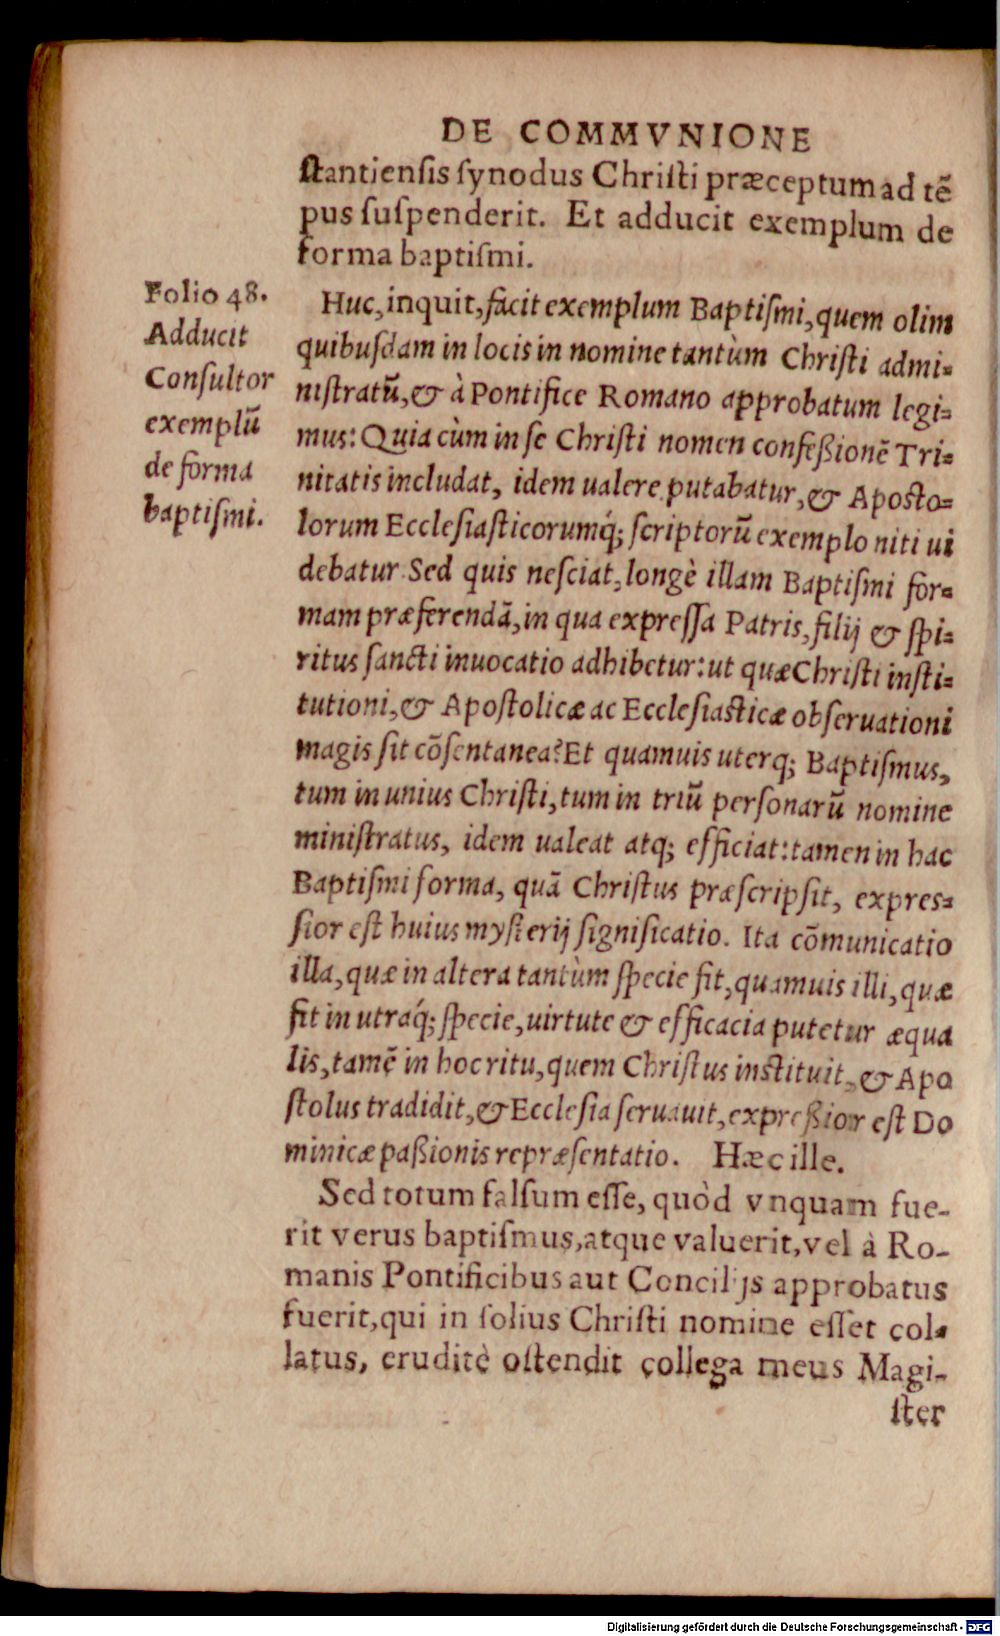 DE COMMVNIONE
ſtantienſis ſynodus Chriſti præceptum ad tē
pus ſuſpenderit. Et adducit exemplum de
forma baptiſmi.
Folio 48.
Adducit
Conſultor
exemplū
de forma
baptiſmi.
Huc, inquit, facit exemplum Baptiſmi, quem olim
quibuſdam in locis in nomine tantùm Chriſti admi-
niſtratū, & à Pontifice Romano approbatum legi-
mus: Quia cùm in ſe Chriſti nomen confeßionē Tri-
nitatis includat, idem ualere putabatur, & Apoſto-
lorum Eccleſiaſticorumq́; ſcriptorū exemplo niti ui
debatur. Sed quis neſciat, longè illam Baptiſmi for-
mam præferendā, in qua expreſſa Patris, filij & ſpi-
ritus ſancti inuocatio adhibetur: ut quæ Chriſti inſti-
tutioni, & Apoſtolicæ ac Eccleſiaſticæ obſeruationi
magis ſit cōſentanea? Et quamuis uterq; Baptiſmus,
tum in unius Chriſti, tum in triū perſonarū nomine
miniſtratus, idem ualeat atq; efficiat: tamen in hac
Baptiſmi forma, quā Chriſtus præſcripſit, expreſ-
ſior eſt huius myſterij ſignificatio. Ita cōmunicatio
illa, quæ in altera tantùm ſpecie fit, quamuis illi, quæ
fit in utraq́; ſpecie, uirtute & efficacia putetur æqua
lis, tamē in hoc ritu, quem Chriſtus inſtituit, & Apo
ſtolus tradidit, & Eccleſia ſeruauit, expreßior eſt Do
minicæ paßionis repræſentatio. Hæc ille.
Sed totum falſum eſſe, quòd vnquam fue-
rit verus baptiſmus, atque valuerit, vel à Ro-
manis Pontificibus aut Concilijs approbatus
fuerit, qui in ſolius Chriſti nomine eſſet col-
latus, eruditè oſtendit collega meus Magi-
ſter
Digitalisierung gefördert durch die Deutsche Forschungsgemeinschaft - DFG